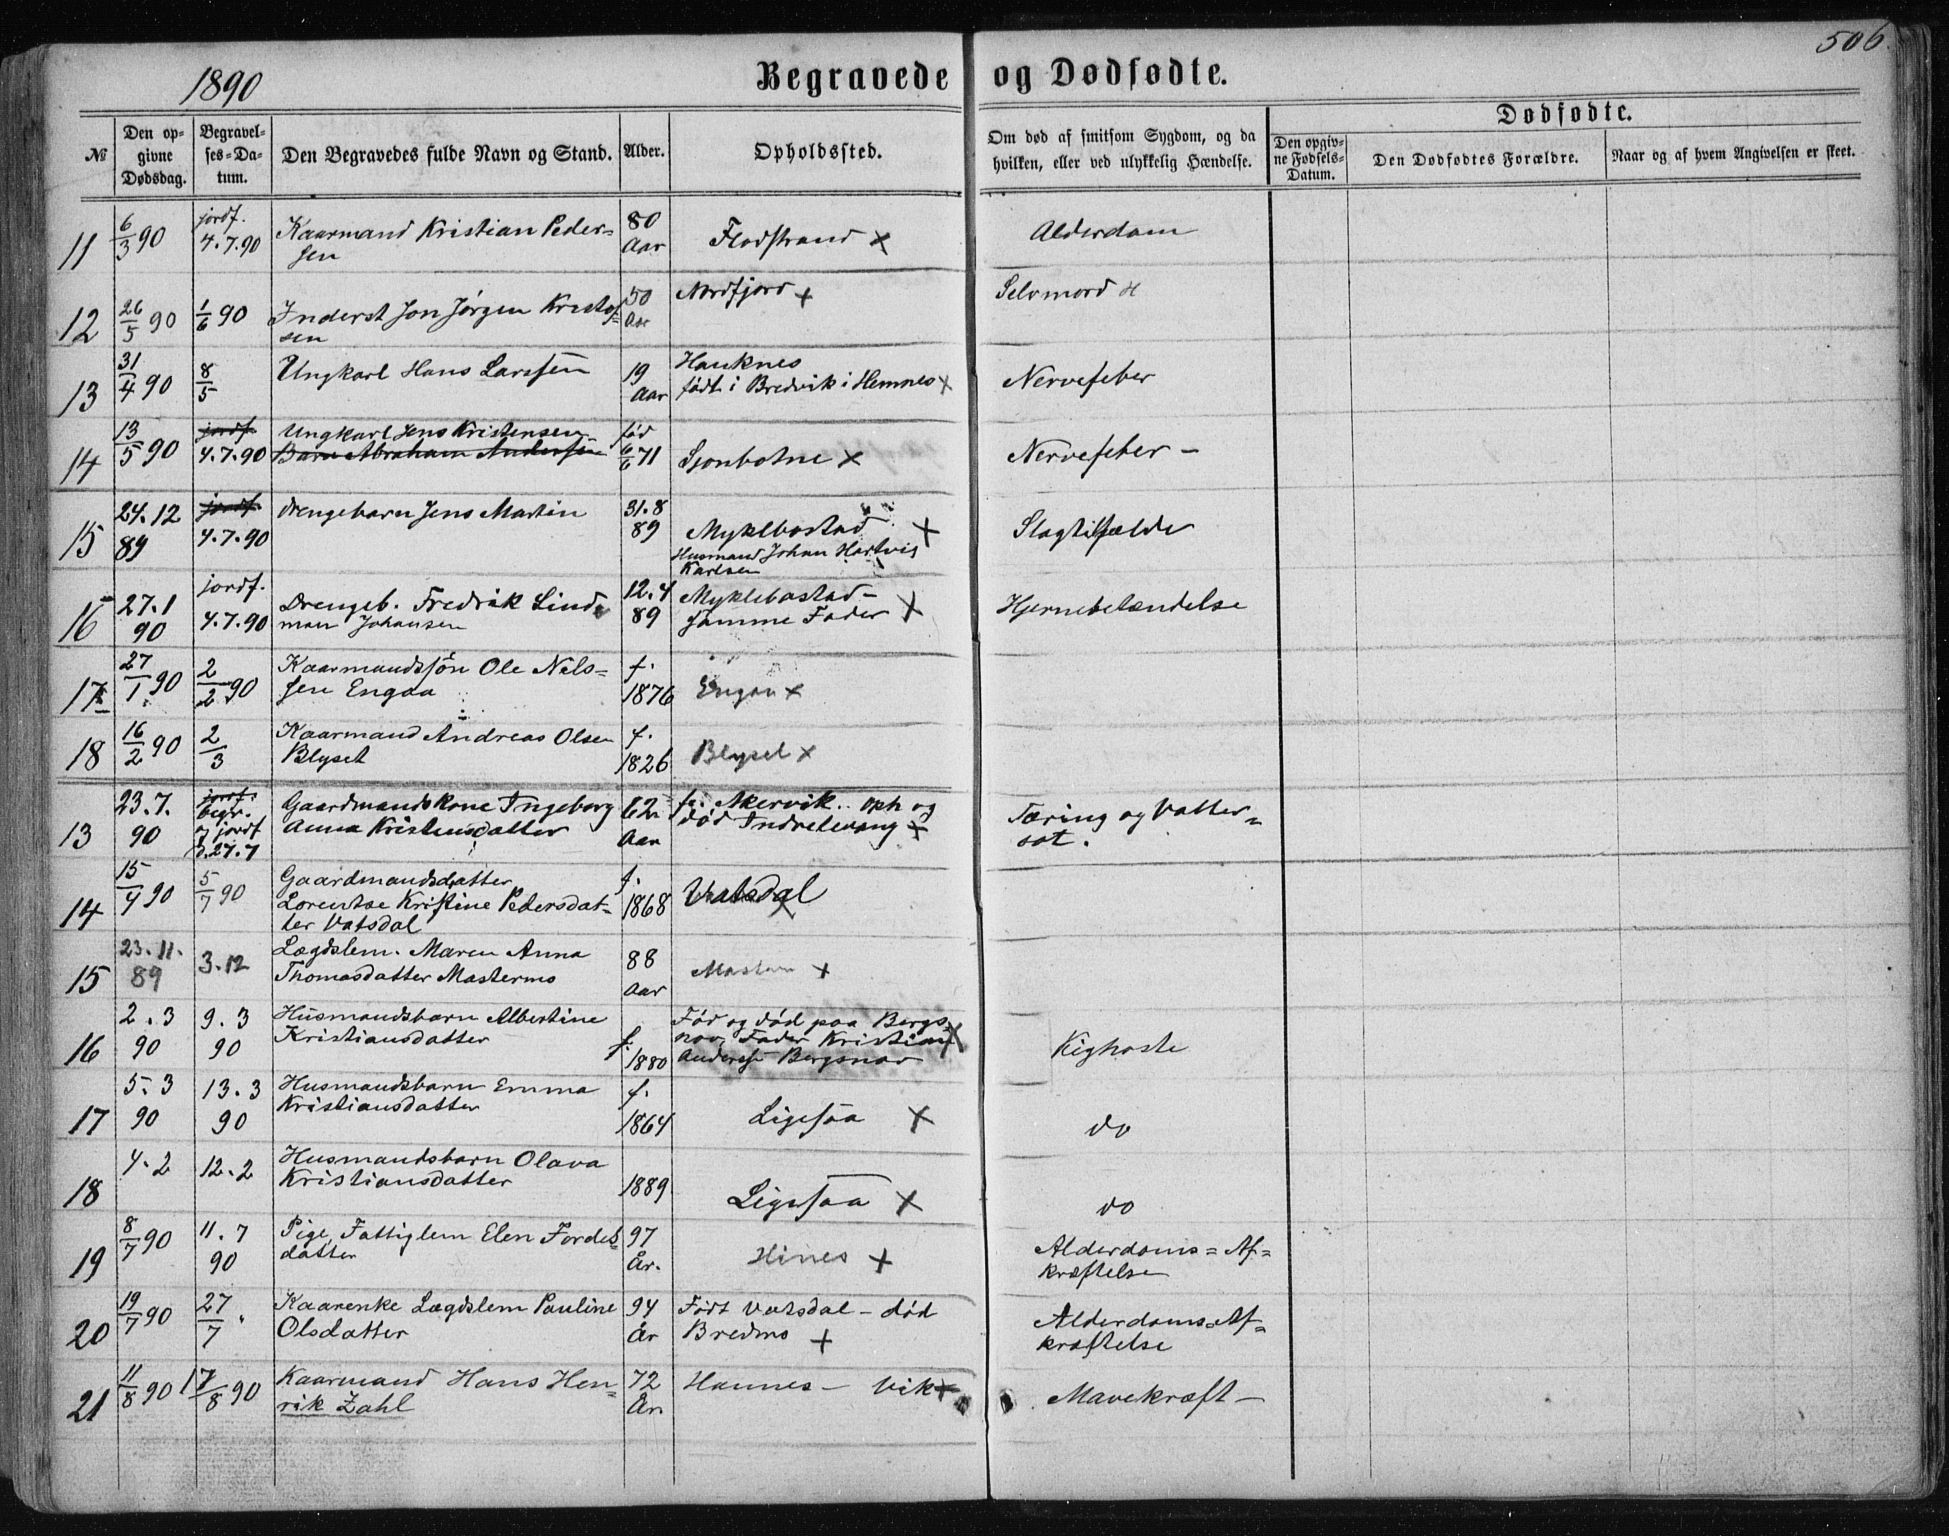 506.
1890
Begravede og Dødfødte.
Dødfødte.
№
Den op-
givne
Dødsdag.
Begravel-
ses-Da-
tum.
Den Begravedes fulde Navn og Stand.
Alder.
Opholdssted.
Om død af smitsom Sygdom, og da
hvilken, eller ved ulykkelig Hændelse.
Den opgiv-
ne Fødsels-
Datum.
Den Dødfødtes Forældre.
Naar og af hvem Angivelsen er skeet.
11 6/3 90 jordf. 4.7.90 Kaarmand Kristian Peder- 80 Aar Flodstrand × Alderdom
sen
12 26/5 90 1/6 90 Inderst Jon Jørgen Kristof- 50 Aar Nordfjord + Selvmord
sen
13 31/4 90 8/5 Ungkarl Hans Larssen 19 Aar Hauknes Nervefeber
født i Bredvik i Hemnes ×
14 13/5 90 jordf. 4.7.90 Ungkarl Jens Kristensen fød 6/6 71 Sjonbotne × Nervefeber –
Barn Abraham Andersen
15 24.12 89 jordf. 4.7.90 Drengebarn Jens Martin 31.8 89 Myklebostad + Slagtilfælde
Husmand Johan Hartvig
Karlsen
16 27.1 90 jordf. 4.7.90 Drengeb. Fredrik Lind- 12.4 89 Myklebostad – Hjernebetændelse
man Johansen samme Fader ×
17 27/1 90 2/2 90 Kaarmandssøn Ole Nels- f. 1876 Engaa ×
sen Engaa
18 16/2 90 2/3 Kaarmand Andreas Olsen f. 1826 Blysel ×
Blyset
13 23.7. 90 jordf. begr. 7 jordf d. 27.7 Gaardmandskone Ingeborg 62 Aar f. Akervik.. oph og Tæring og Vatter=
Anna Kristensdatter død Indrelevang + sot.
14 15/4 90 5/7 90 Gaardmandsdatter f. 1868 Vatsdal ×
Lorentse Kristine Pedersdat-
ter Vatsdal
15 23.11. 89 3.12 Lægdslem. Maren Anna 88 Aar +
Thomasdatter Mastermo
16 2.3 90 9.3 90 Husmandsbarn Albertine f. 1880 Fød og død paa Bergs- Kighoste
Kristiansdatter nov, Fader Kristian ×
Anders Bergsnov
17 5.3 90 13.3 90 Husmandsbarn Emma f. 1864 Ligesaa × do
Kristiansdatter
18 4.2 12.2 Husmandsbarn Olava 1889 Ligesaa × do
Kristiansdatter
19 8/7 90 11.7 90 Pige, Fattiglem Elen Fordels- 97 År. Hines + Alderdoms=Af=
datter kræftelse
20 19/7 90 27/7 " Kaarenke Lægdslem Pauline 94 År Født Vatsdal – død Alderdoms=Af=
Olsdatter Bredmo + kræftelse
21 11/8 90 17/8 90 Kaarmand Hans Hen= 72 År Hannes – Vik + Mavekræft –
rik Zahl